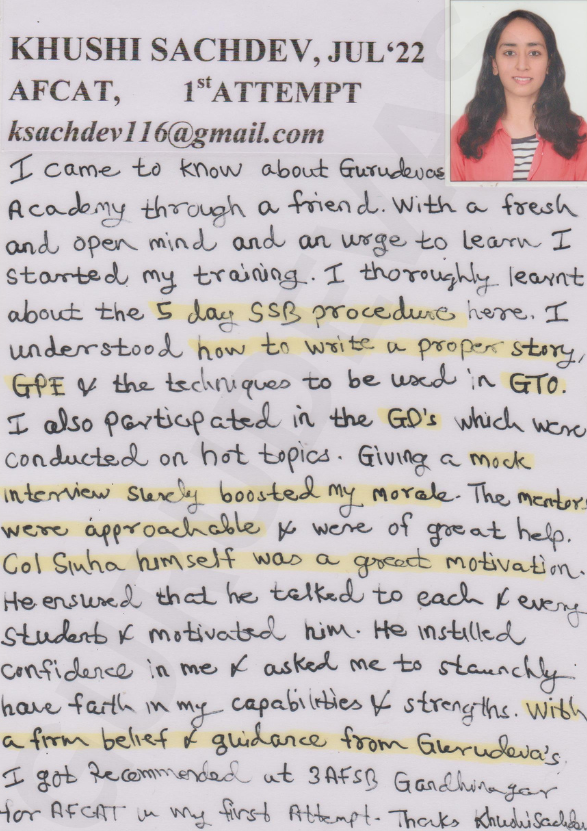 KHUSHI SACHDEV, JUL‘22
AFCAT, 1st ATTEMPT
ksachdev116@gmail.com
I came to know about Gurudevas
Academy through a friend. With a fresh
and open mind and an urge to learn I
started my training. I thoroughly learnt
about the 5 day SSB procedure here. I
understood how to write a proper story,
GPE & the techniques to be used in GTO.
I also particpated in the GD's which were
conducted on hot topics. Giving a mock
interview surely boosted my morale. The mentors
were approachable & were of great help.
Col Sinha himself was a great motivation.
He ensured that he talked to each & every
student & motivated him. He instilled
confidence in me & asked me to staunchly
have faith in my capabilities & strengths. With
a firm belief & guidance from Gurudeva's.
I got Recommended at 3AFSB Gandhinagar
for AFCAT in my first Attempt. Thanks Khushi Sachdev
GURUDEVAS